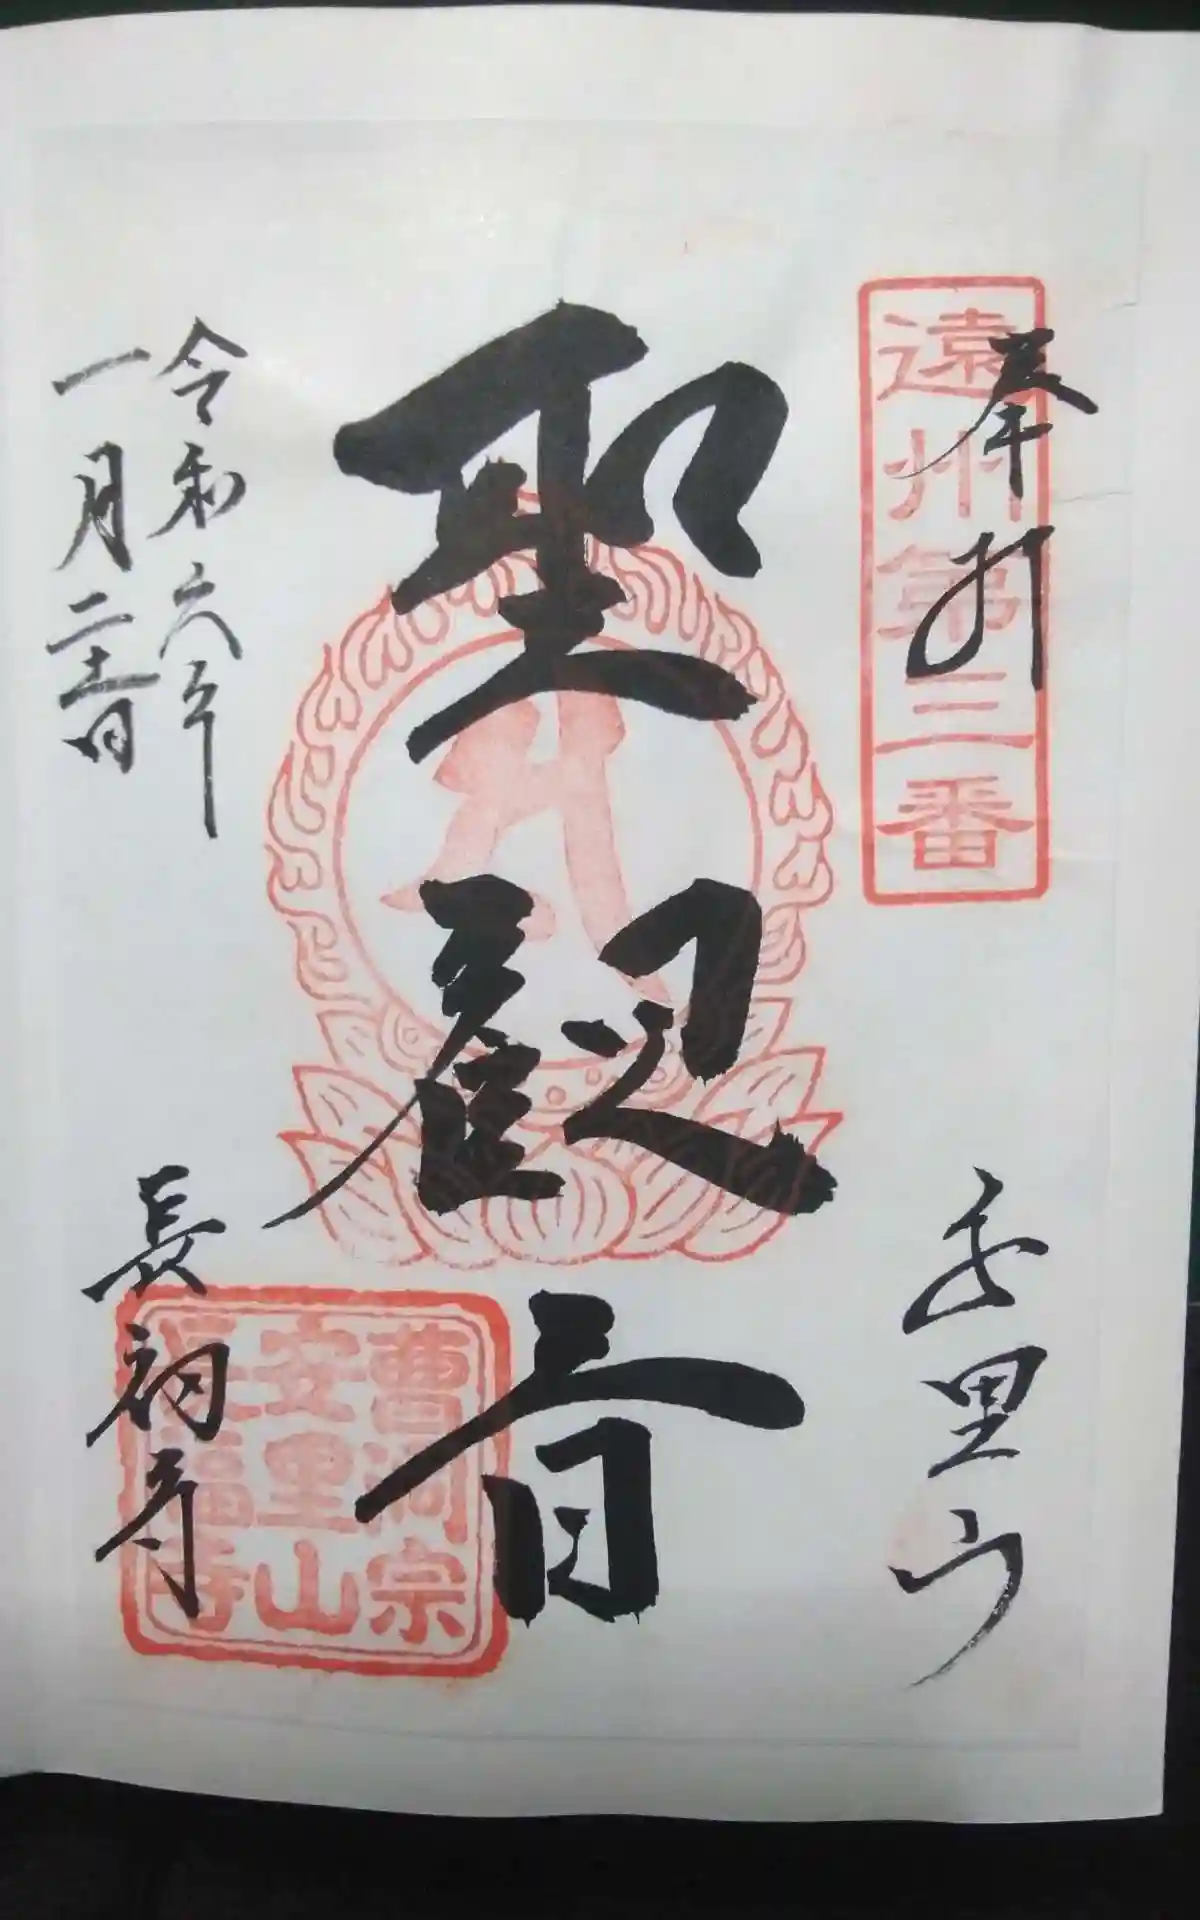 奉拝
遠州第三番
安里山
聖観音
令和六年
一月二十一日
長福寺
曹洞宗
安里山
長福寺